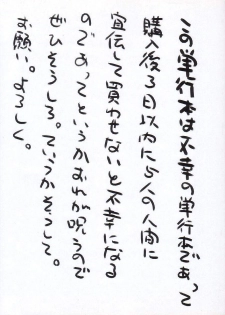 この単行本は不幸の単行本であって
購入後3日以内に5人の人間に
宣伝して買わせないと不幸になる
のであってというかおれが呪うので
ぜひそうしろ。ていうかそうして。
お願い。よろしく。